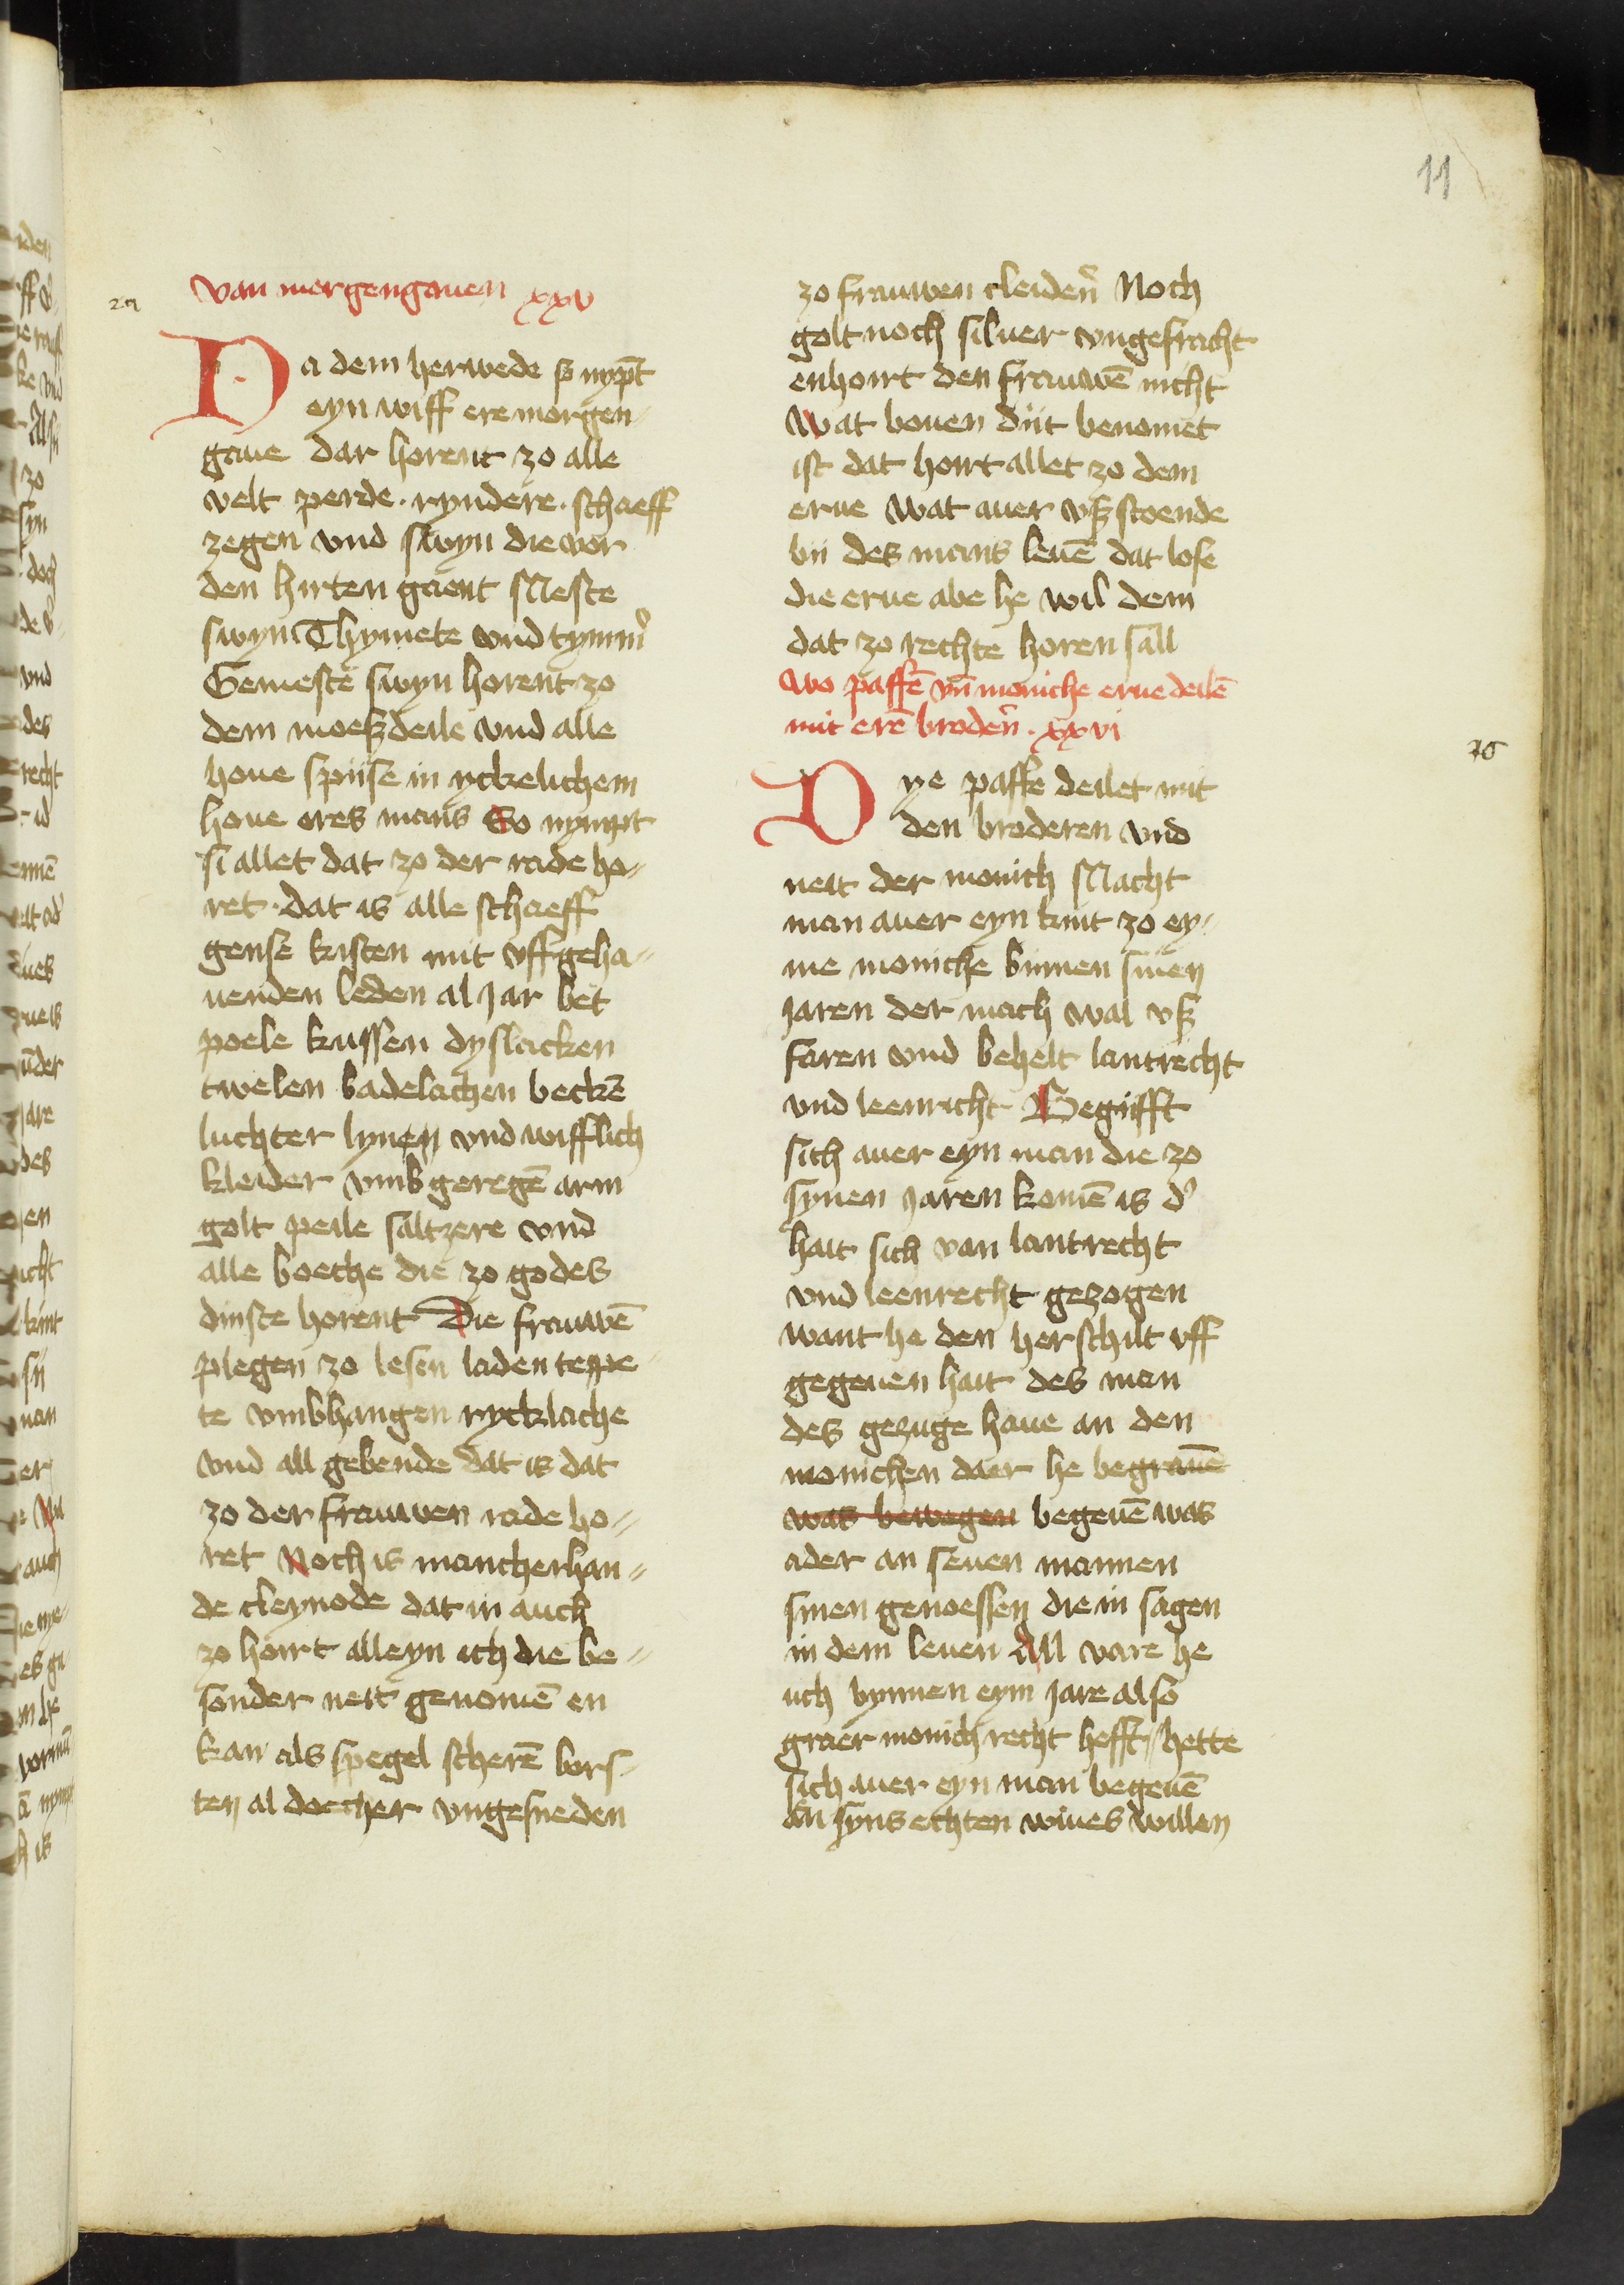 11
van morgengauen xxv
Da dem herwede so nypt̄
eyn wiff ere morgen=
gaue dar horent zo alle
velt perde · ryndere · schaeff
zegen vnd swyn die vor
den hirten gaent Meste
swyn Thymete vnd tymm͛
Gemeste swyn horent zo
dem moeszdeile vnd alle
houe spiise in yckelichem
houe eres mans So nympt
si allet dat zo der rade ho=
ret · dat is alle schaeff
gense kisten mit vffgeha=
uenden leden al jar bet
poele kussen dyslacken
twelen badelachen beckē
luchter lynen vnd wifflich
kleider vmbgeregē arm
golt peile saltzere vnd
alle boeche die zo godes
dinste horent Die frauwē
plegen zo lesen laden teppe=
te vmbhangen rycklache
vnd all gebende dat is dat
zo der frauwen rade ho=
ret Noch is mancherhan=
de cleynode dat in auch
zo hoirt alleyn ich die be=
sonder neit genomē en
kan als spegel scherē bors=
ten al doecher vngesneden
zo frauwen cleiden͛ Noch
golt noch siluer vngefracht
enhoirt den frauwē nicht
Wat bouen diit benomet
ist dat hoirt allet zo dem
erue Wat auer vsz stoende
bii des mans leuē dat lose
die erue abe he wil dem
dat zo rechte horen sall
Wo paffē vn̄ moniche erue deilē
mit erē broden͛ · xxvi
Dye paffe deilet mit
den broderen vnd
neit der monich Macht
man auer eyn kint zo ey=
me moniche binnen sinen
jaren der mach wal vsz
faren vnd behelt lantrecht
vnd leenricht Begiifft
sich auer eyn man die zo
synen jaren komē is d͛
hait sich van lantrecht
vnd leenrecht gezogen
want he den herschilt vff
gegeuen hait des man
des gezuge haue an den
monichen daer he begrauē
was bewegen begeuē was
ader an seuen mannen
sinen genoessen die in sagen
in dem leuen All vare he
uch bynnen eym jare also
graer monich recht hefft / hette
sich auer eyn man begeuē
an syns echten wiues willen